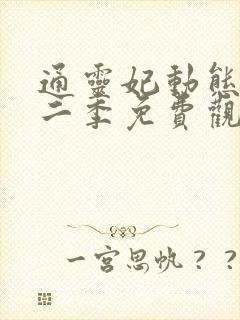 通靈妃動態
二季免費觀
一宮思帆？？